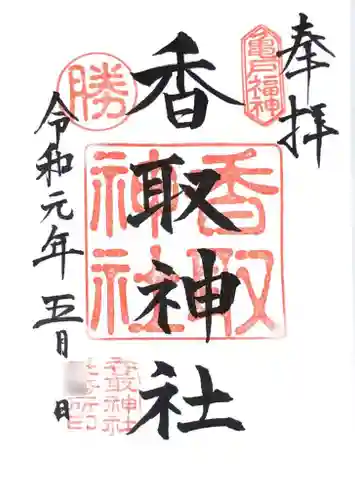 奉拝
亀戸福神
香取神社
香取神社
勝
令和元年五月 日
香取神社